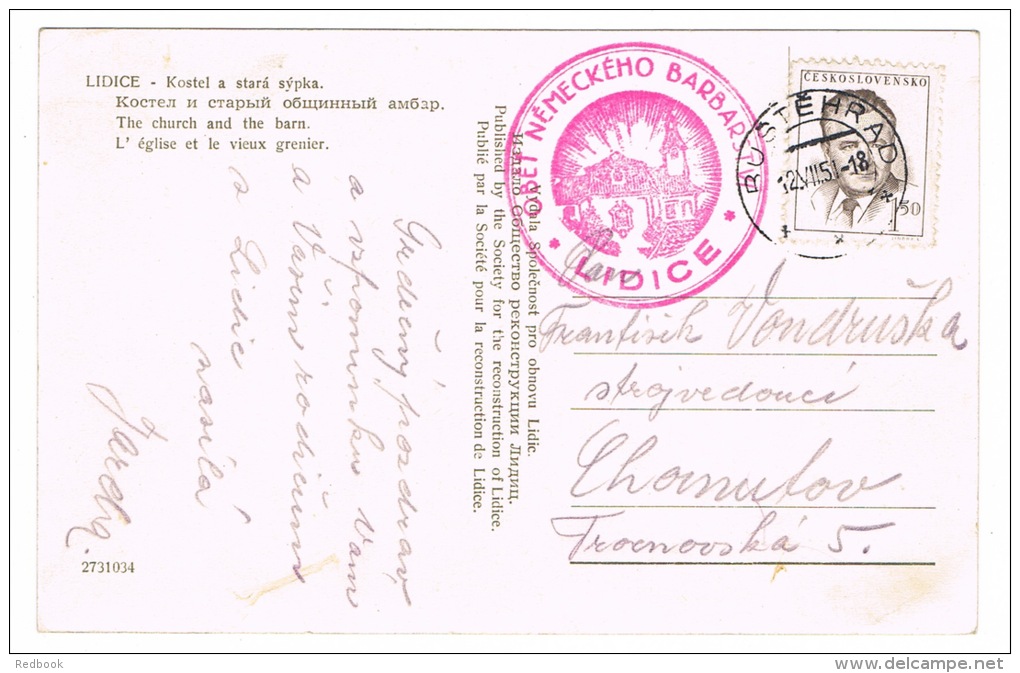 LIDICE - Kostel a stará sýpka.
Костел и старый общинный амбар.
The church and the barn.
L' église et le vieux grenier.
Srdečný pozdrav
a vzpomínku Vám
a Vašim rodičům
z Lidic
zasílá
Jarda.
2731034
Vydala Společnost pro obnovu Lidic.
Издало Общество реконструкции Лидиц.
Published by the Society for the reconstruction of Lidice.
Publié par la Société pour la reconstruction de Lidice.
OBĚŤ NĚMECKÉHO BARBARSTVÍ
* LIDICE *
ČESKOSLOVENSKO
1 50
BUŠTĚHRAD
12.VII.51-18
Pan
František Vondruška
strojvedoucí
Chomutov
Trocnovská 5.
Redbook
www.delcampe.net